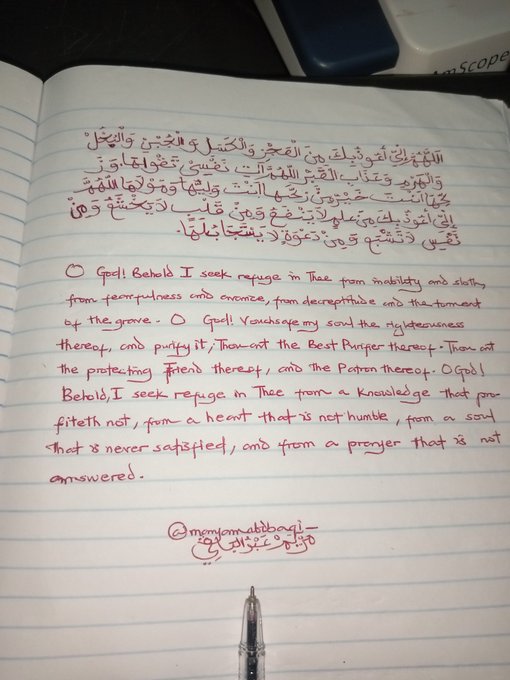 AmScope
اَللَّهُمَّ إِنِّيْ أَعُوْذُبِكَ مِنَ الْعَجْزِ وَالْكَسَلِ وَالْجُبْنِ وَالْبُخْلِ
وَالْهَرَمِ وَعَذَابِ الْقَبْرِ اللَّهُمَّ اٰتِ نَفْسِيْ تَقْوٰلهَا وَزَ
كِّهَا أَنْتَ خَيْرُ مَنْ زَكّٰهَا أَنْتَ وَلِيُّهَا وَمَوْلٰهَا اللَّهُمَّ
إِنِّيْ أَعُوْذُ بِكَ مِنْ عِلْمٍ لَا يَنْفَعُ وَمِنْ قَلْبٍ لَا يَخْشَعُ وَمِنْ
نَّفْسٍ لَا تَشْبَعُ وَمِنْ دَعْوَةٍ لَا يُسْتَجَابُ لَهَا.
O God! Behold I seek refuge in Thee from inability and sloth,
from fearfulness and avarice, from decreptitude and the torment
of the grave. O God! Vouchsafe my soul the righteousness
thereof, and purify it, Thou art the Best Purifier thereof. Thou art
the protecting Friend thereof, and the Patron thereof. O God!
Behold, I seek refuge in Thee from a knowledge that pro-
fiteth not, from a heart that is not humble, from a soul
that is never satisfied, and from a prayer that is not
answered.
@maryamabdbaqi_
مَرْيَمْ عَبْدُالْبَاقِي